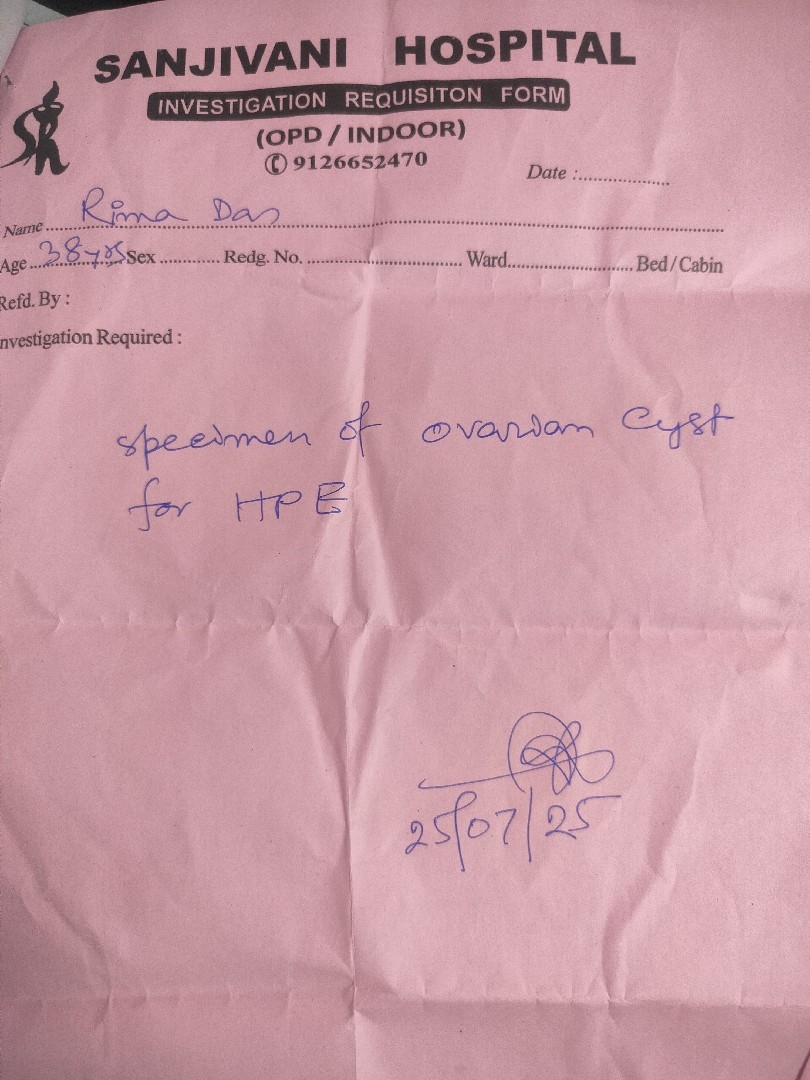 SANJIVANI HOSPITAL
INVESTIGATION REQUISITON FORM
(OPD / INDOOR)
✆ 9126652470
Date :....................
Name ..... Rima Das .....
Age ... 38 yrs Sex ............ Redg. No. ................................ Ward......................... Bed/Cabin
Refd. By :
nvestigation Required :
specimen of ovarian Cyst
for HPE
25/07/25